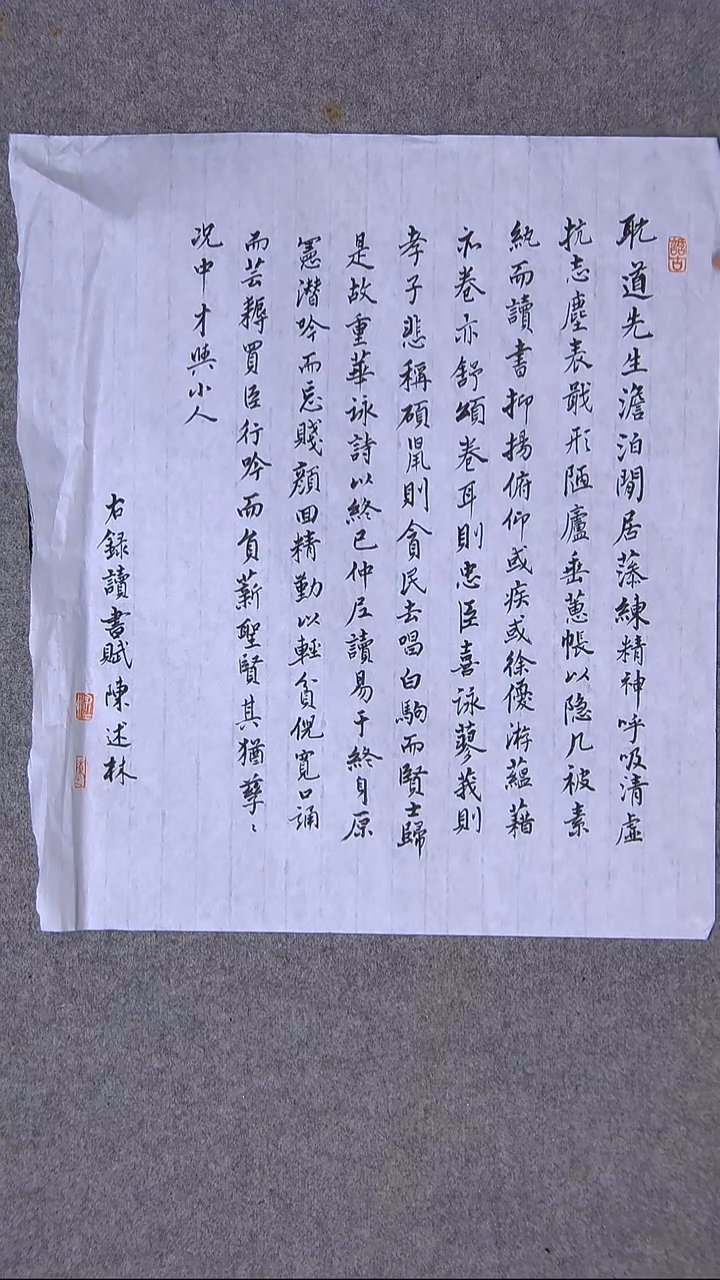 耽道先生澹泊閒居藻練精神呼吸清虛
抗志塵表戢形陋廬垂蕙帳以隐几被素
紈而讀書抑揚俯仰或疾或徐優游蘊藉
亦卷亦舒頌卷耳則忠臣喜詠蓼莪則
孝子悲稱碩鼠則貪民去唱白駒而賢士歸
是故重華詠詩以終已仲尼讀易于終身原
憲潜吟而忘賤顔回精勤以輕貧倪寬口誦
而芸耨買臣行吟而負薪聖賢其猶孳〻
况中才與小人
右録讀書賦陳述林